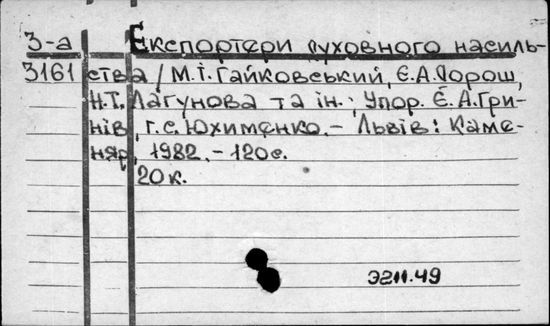 З-а Експортери духовного насиль-
3161 ства / М.Т. Гайковський, Є.А. Дорош,
Н.Т. Лагунова та ін.; Упор. Є.А. Гри-
нів, Г.С. Юхименко. – Львів: Каме-
няр, 1982. – 120с.
20 к.
Э211.49